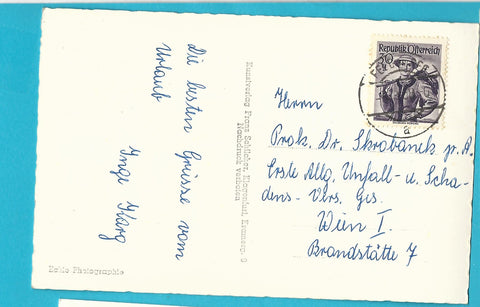 Die besten Grüsse vom
Urlaub
Inge Karg
Kunstverlag Franz Schilcher, Klagenfurt,
Nachdruck verboten
Echte Photographie
Republik Österreich
30
a
Herrn
Prok. Dr. Skrabanek p. A.
Erste Allg. Unfall- u. Scha-
dens- Vers. Ges.
Wien I.
Brandstätte 7